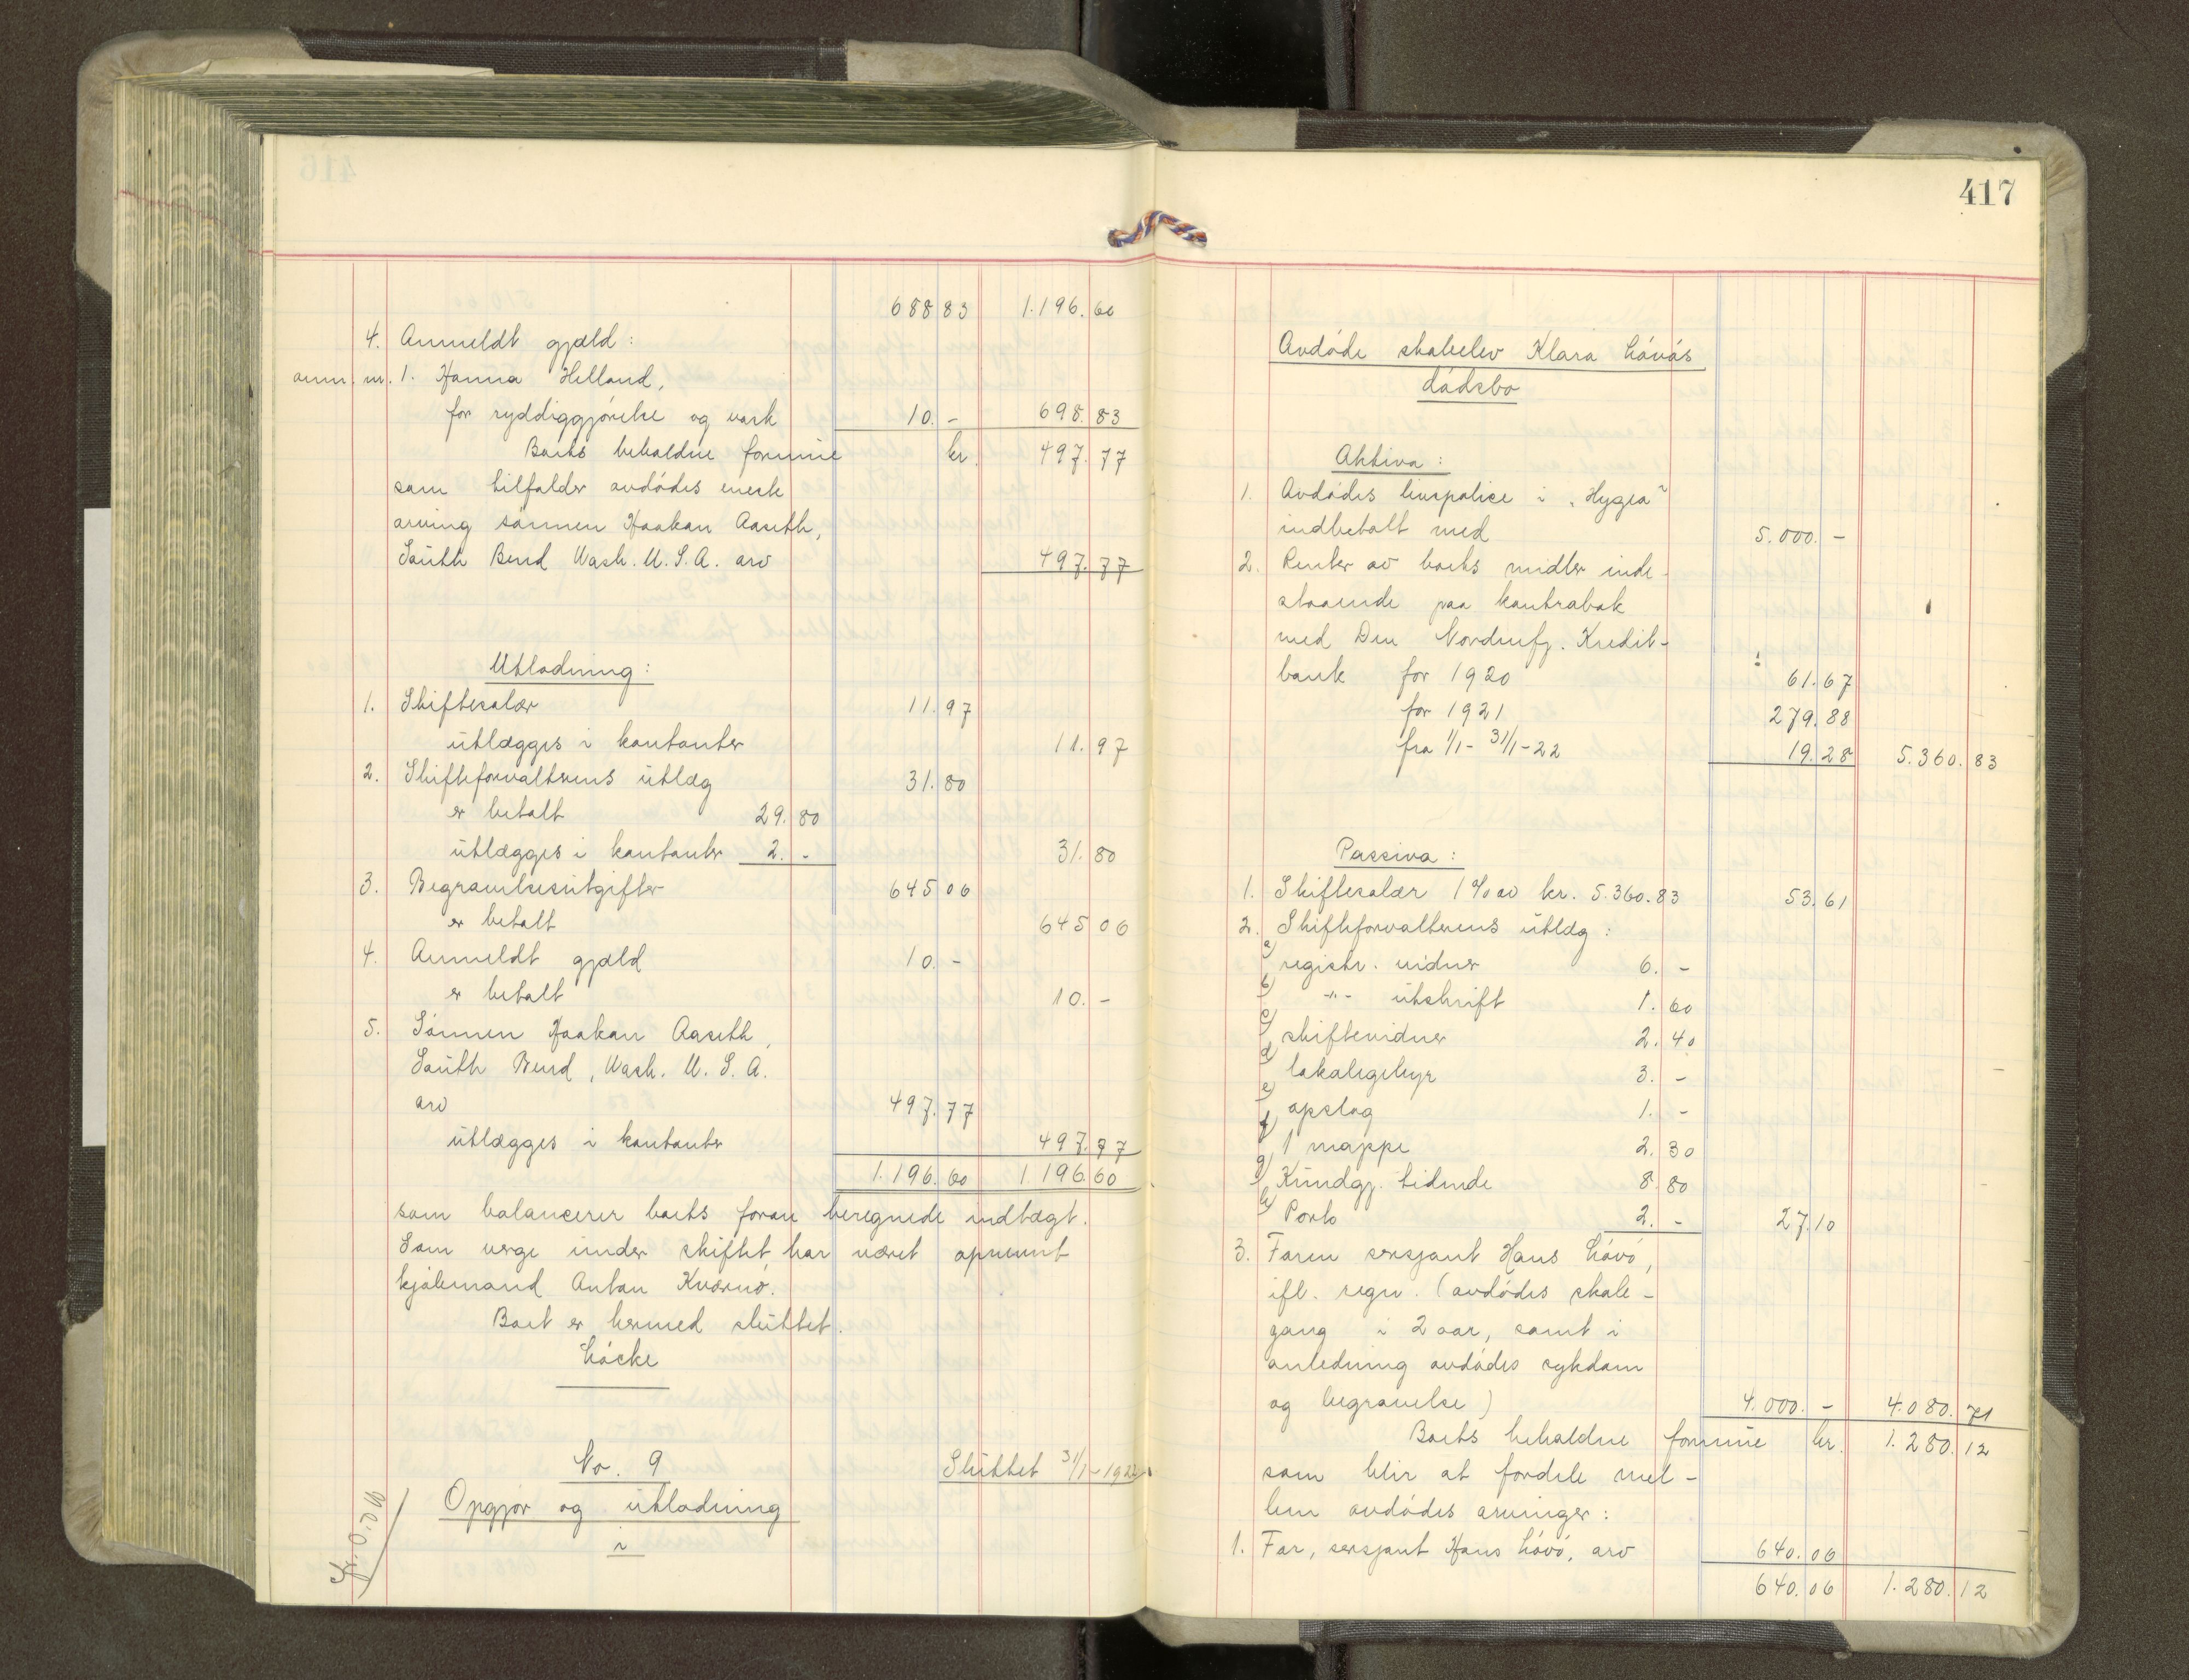 416
688 83 1.196.60
4. Anmeldt gjæld:
anm. nr. 1. Hanna Helland,
for ryddiggjörelse og vask 10.- 698.83
Boets beholdne formue kr. 497.77
som tilfalder avdödes eneste
arving sönnen Haakon Aaseth,
South Bend Wash. U.S.A. arv 497.77
Utlodning:
1. Skiftesalær 11.97
utlægges i kontanter 11.97
2. Skifteforvalterens utlæg 31.80
er betalt 29.80
utlægges i kontanter 2.- 31.80
3. Begravelsesutgifter 645 06
er betalt 645 06
4. Anmeldt gjæld 10.-
er betalt 10.-
5. Sönnen Haakon Aaseth,
South Bend, Wash. U. S. A.
arv 497.77
utlægges i kontanter 497.77
1.196.60 1.196.60
som balancerer boets foran beregnede indtægt.
Som verge under skiftet har været opnevnt
kjöbmand Anton Kværnö.
Boet er hermed sluttet.
Löcke
No. 9 Sluttet 31/1-1922
Opgjör og utlodning
i
417
Avdöde skoleelev Klara Lövös
dödsbo
Aktiva:
1. Avdödes livspolice i "Hygea"
indbetalt med 5.000.-
2. Renter av boets midler inde-
staaende paa kontrabok
med Den Nordenfj. Kredit-
bank for 1920 61.67
for 1921 279.88
fra 1/1- 31/1-22 19.28 5.360.83
Passiva:
1. Skiftesalær 1% av kr. 5.360.83 53.61
2. Skifteforvalterens utlæg:
a) registr. vidner 6.-
b) -"- utskrift 1.60
c) skiftevidner 2.40
d) lokalegebyr 3.-
e) opslag 1.-
f) 1 mappe 2.30
g) Kundgj. tidende 8.80
h) Porto 2.- 27.10
3. Faren sersjant Hans Lövö,
ifl. regn. (avdödes skole-
gang i 2 aar, samt i
anledning avdödes sykdom
og begravelse) 4.000.- 4.080.71
Boets beholdne formue kr. 1.280.12
som blir at fordele mel-
lem avdödes arvinger:
1. Far, sersjant Hans Lövö, arv 640.06
640.06 1.280.12